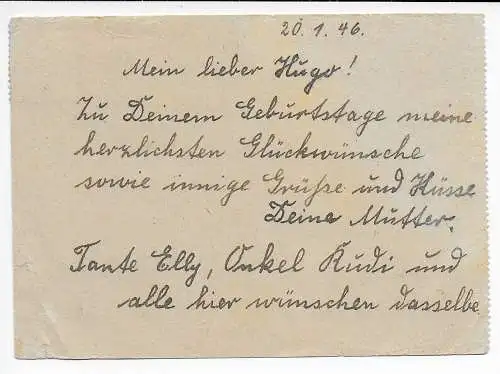 20.1.46.
Mein lieber Hugo!
Zu Deinem Geburtstage meine
herzlichsten Glückwünsche
sowie innige Grüße und Küsse
Deine Mutter.
Tante Elly, Onkel Rudi und
alle hier wünschen dasselbe